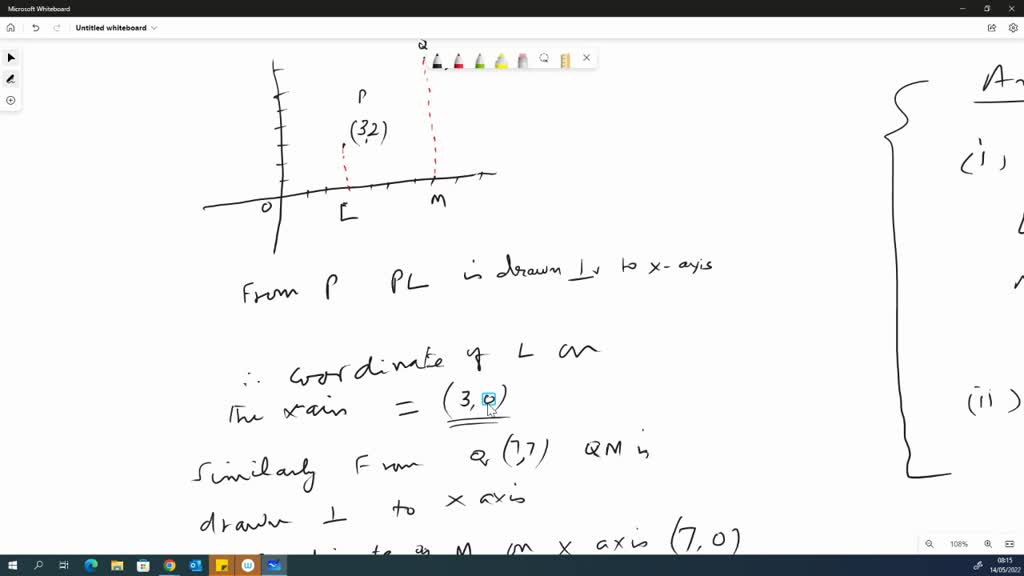 Microsoft Whiteboard
Untitled whiteboard
Q
P
(3,2)
O
L
M
From P PL is drawn ⊥r to x-axis
∴ coordinate of L on
the x axis = (3, 0)
Similarly From Q (7,7) QM is
drawn ⊥ to x axis
M on x axis (7, 0)
(i)
(ii)
108%
08:15
14/05/2022